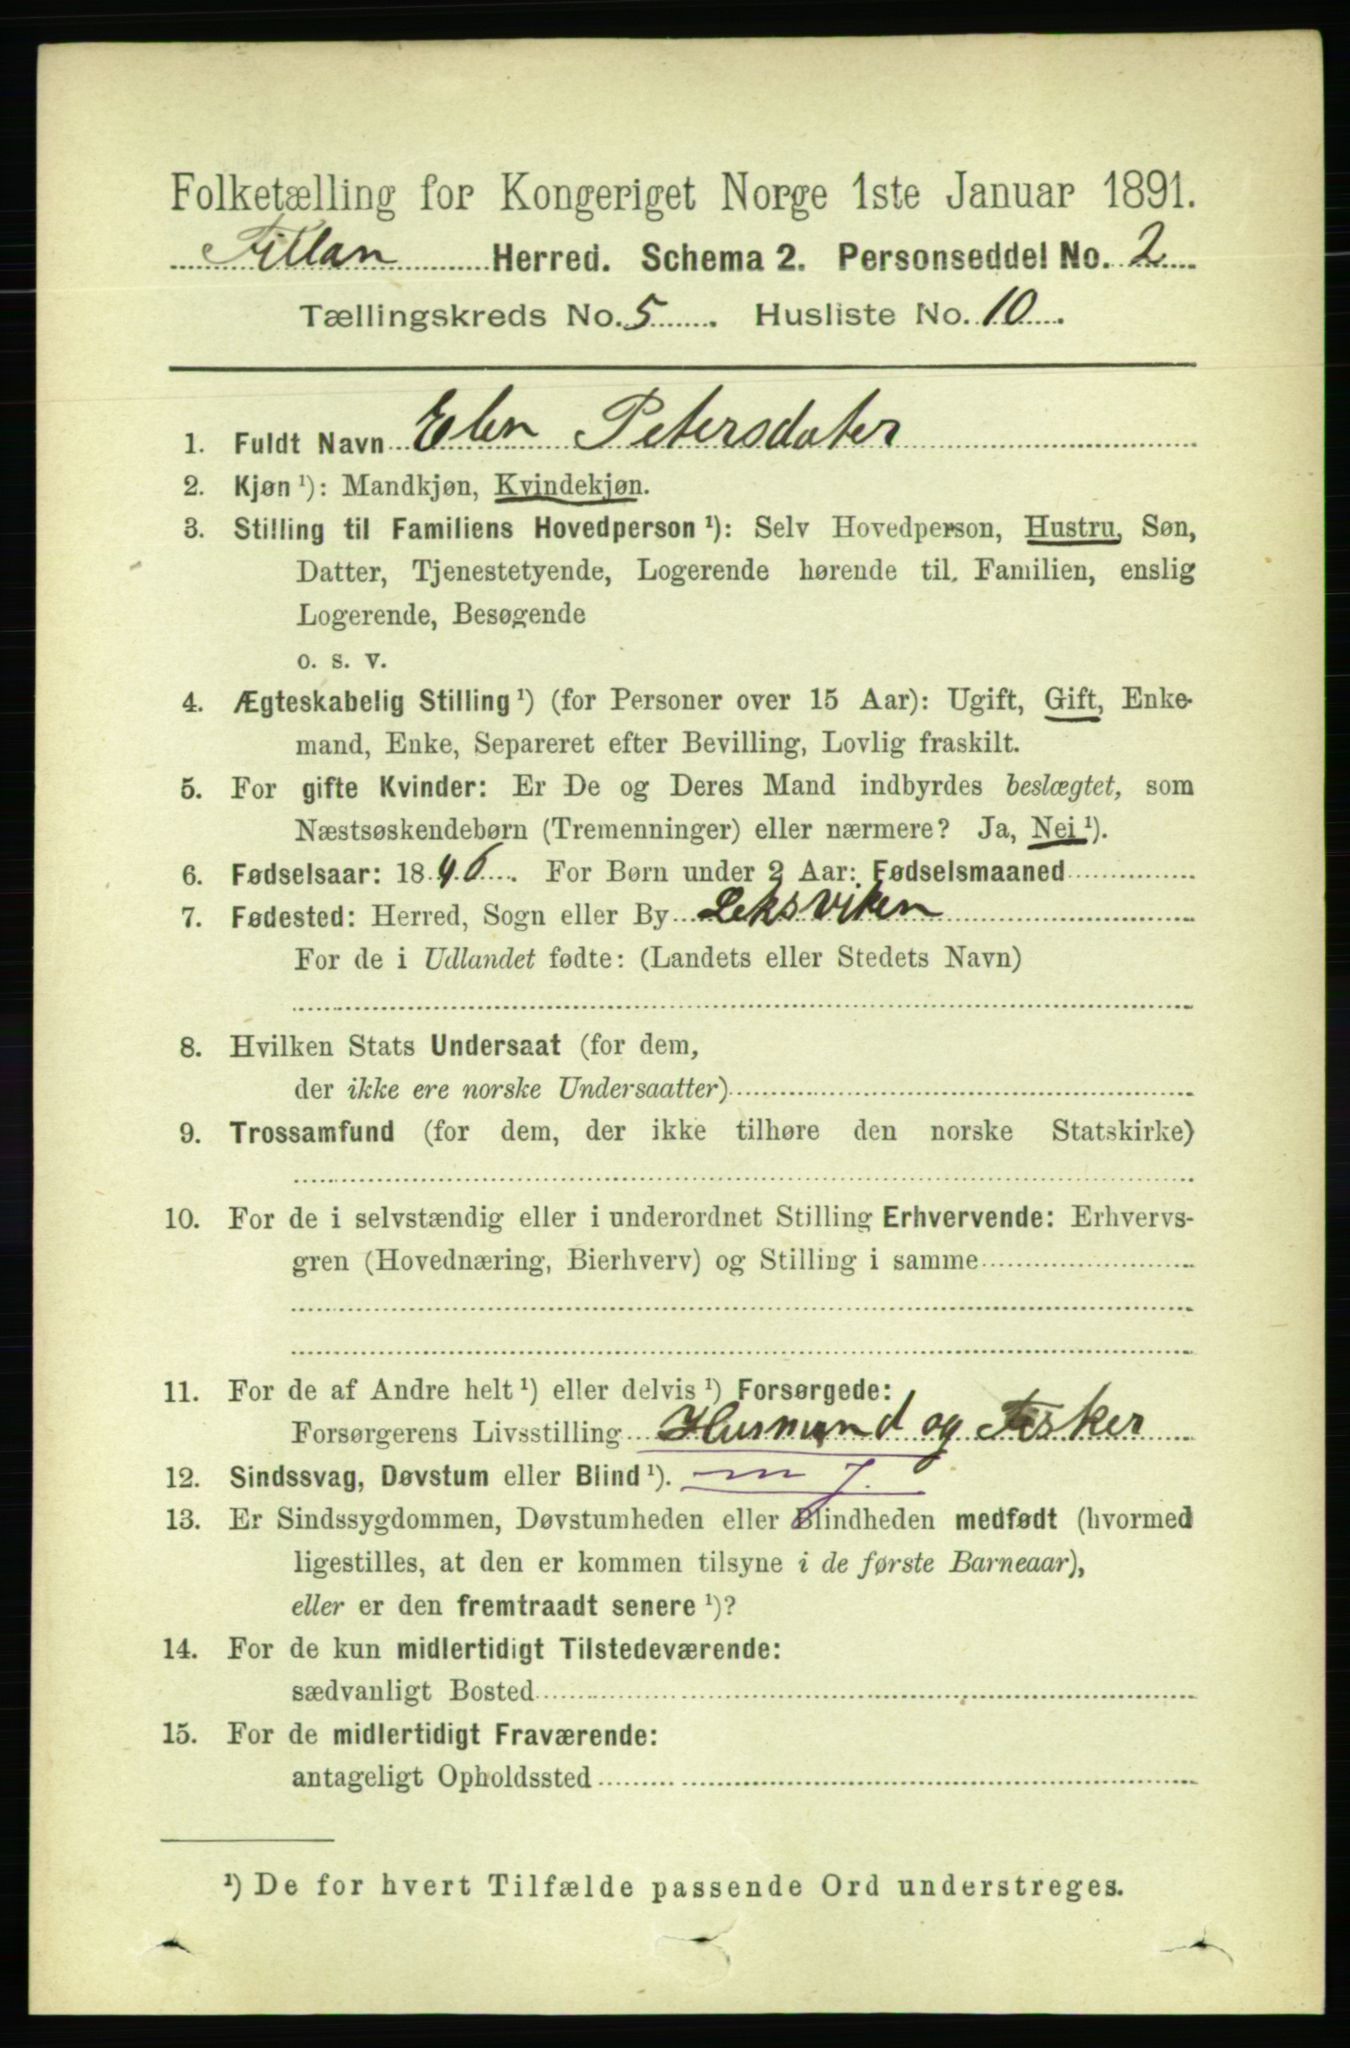 Folketælling for Kongeriget Norge 1ste Januar 1891.
Fillan Herred. Schema 2. Personseddel No. 2
Tællingskreds No. 5. Husliste No. 10.
1. Fuldt Navn Elen Petersdater
2. Kjøn ¹): Mandkjøn, Kvindekjøn.
3. Stilling til Familiens Hovedperson ¹): Selv Hovedperson, Hustru, Søn,
Datter, Tjenestetyende, Logerende hørende til Familien, enslig
Logerende, Besøgende
o. s. v.
4. Ægteskabelig Stilling ¹) (for Personer over 15 Aar): Ugift, Gift, Enke-
mand, Enke, Separeret efter Bevilling, Lovlig fraskilt.
5. For gifte Kvinder: Er De og Deres Mand indbyrdes beslægtet, som
Næstsøskendebørn (Tremenninger) eller nærmere? Ja, Nei ¹).
6. Fødselsaar: 1846. For Børn under 2 Aar: Fødselsmaaned
7. Fødested: Herred, Sogn eller By Leksviken
For de i Udlandet fødte: (Landets eller Stedets Navn)
8. Hvilken Stats Undersaat (for dem,
der ikke ere norske Undersaatter)
9. Trossamfund (for dem, der ikke tilhøre den norske Statskirke)
10. For de i selvstændig eller i underordnet Stilling Erhvervende: Erhvervs-
gren (Hovednæring, Bierhverv) og Stilling i samme
11. For de af Andre helt ¹) eller delvis ¹) Forsørgede:
Forsørgerens Livsstilling Husmand og Fisker
12. Sindssvag, Døvstum eller Blind ¹).
13. Er Sindssygdommen, Døvstumheden eller Blindheden medfødt (hvormed
ligestilles, at den er kommen tilsyne i de første Barneaar),
eller er den fremtraadt senere ¹)?
14. For de kun midlertidigt Tilstedeværende:
sædvanligt Bosted
15. For de midlertidigt Fraværende:
antageligt Opholdssted
¹) De for hvert Tilfælde passende Ord understreges.